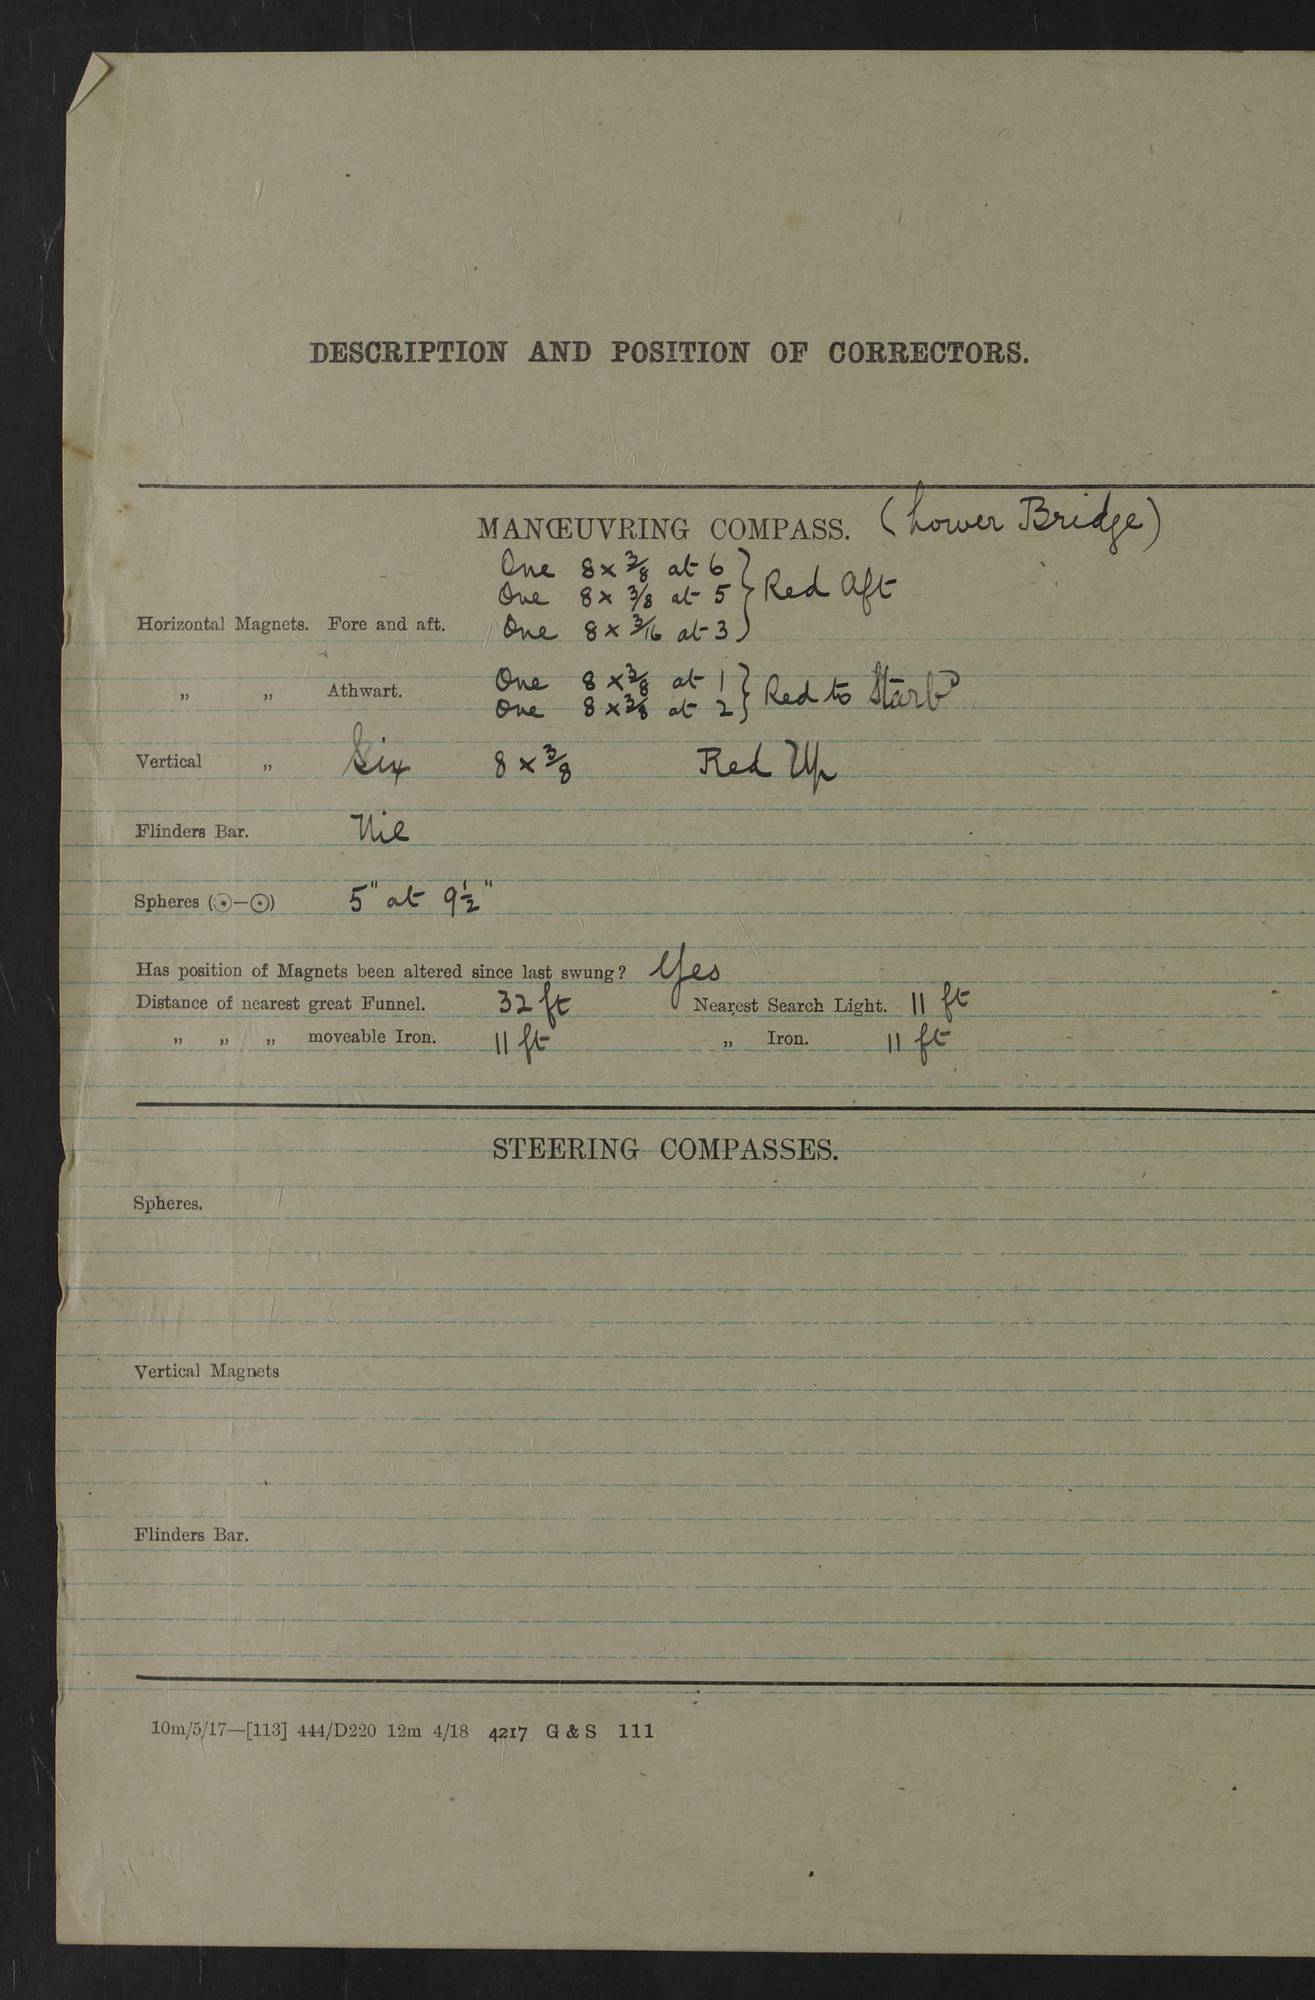 DESCRIPTION AND POSITION OF CORRECTORS.
MANŒUVRING COMPASS. (Lower Bridge)
One 8 x 3/8 at 6
One 8 x 3/8 at 5 } Red Aft
Horizontal Magnets. Fore and aft. One 8 x 3/16 at 3
One 8 x 3/8 at 1
„ „ Athwart. One 8 x 3/8 at 2 } Red to Starbd
Vertical „ Six 8 x 3/8 Red Up
Flinders Bar. Nil
Spheres (⊙—⊙) 5" at 9½"
Has position of Magnets been altered since last swung? Yes
Distance of nearest great Funnel. 32 ft Nearest Search Light. 11 ft
„ „ „ moveable Iron. 11 ft „ Iron. 11 ft
STEERING COMPASSES.
Spheres.
Vertical Magnets
Flinders Bar.
10m/5/17—[113] 444/D220 12m 4/18 4217 G & S 111